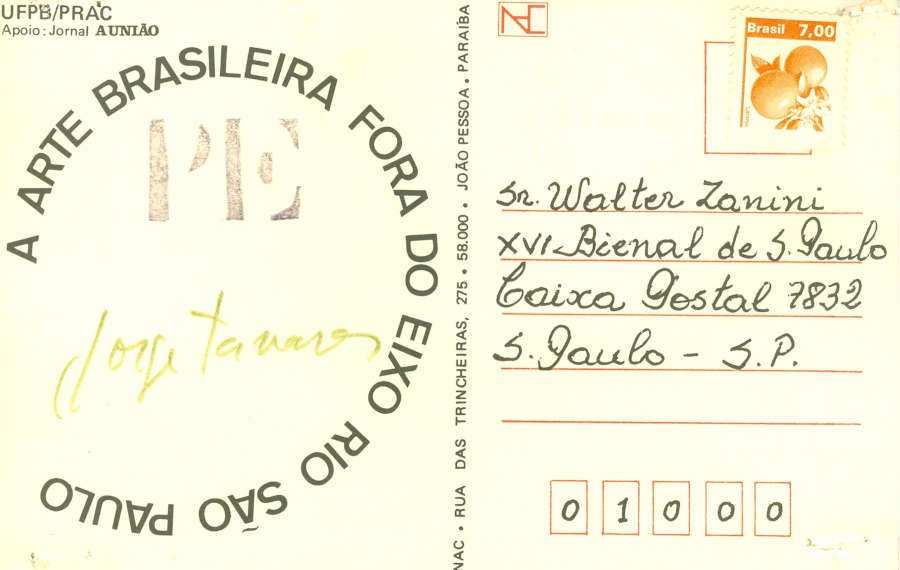 UFPB/PRAC
Apoio: Jornal A UNIÃO
A ARTE BRASILEIRA FORA DO EIXO RIO SÃO PAULO
PE
Jorge Tavares
NAC • RUA DAS TRINCHEIRAS, 275 • 58.000 • JOÃO PESSOA • PARAÍBA
NAC
Brasil 7,00
Sr. Walter Zanini
XVI - Bienal de S. Paulo
Caixa Postal 7832
S. Paulo - S.P.
01000